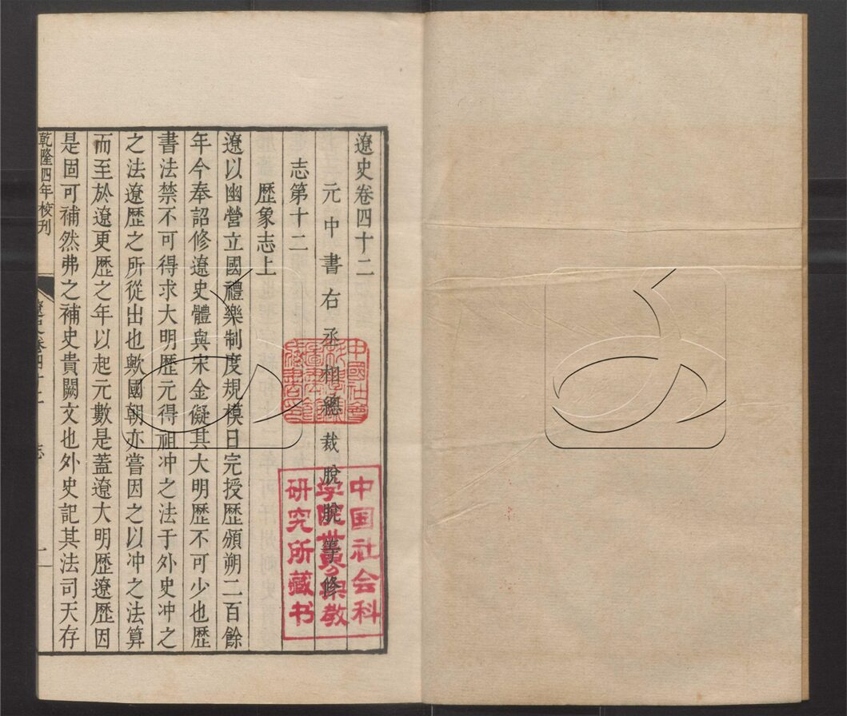 遼史卷四十二
元中書右丞相總裁脫脫等修
志第十二
歷象志上
遼以幽營立國禮樂制度規模日完授歷頒朔二百餘
年今奉詔修遼史體與宋金儗其大明歷不可少也歷
書法禁不可得求大明歷元得祖冲之法于外史冲之
之法遼歷之所從出也歟國朝亦嘗因之以冲之法算
而至於遼更歷之年以起元數是蓋遼大明歷遼歷因
是固可補然弗之補史貴闕文也外史記其法司天存
乾隆四年校刊
遼史卷四十二
志
一
中国社会科
学院世界宗教
研究所藏书
中國社會